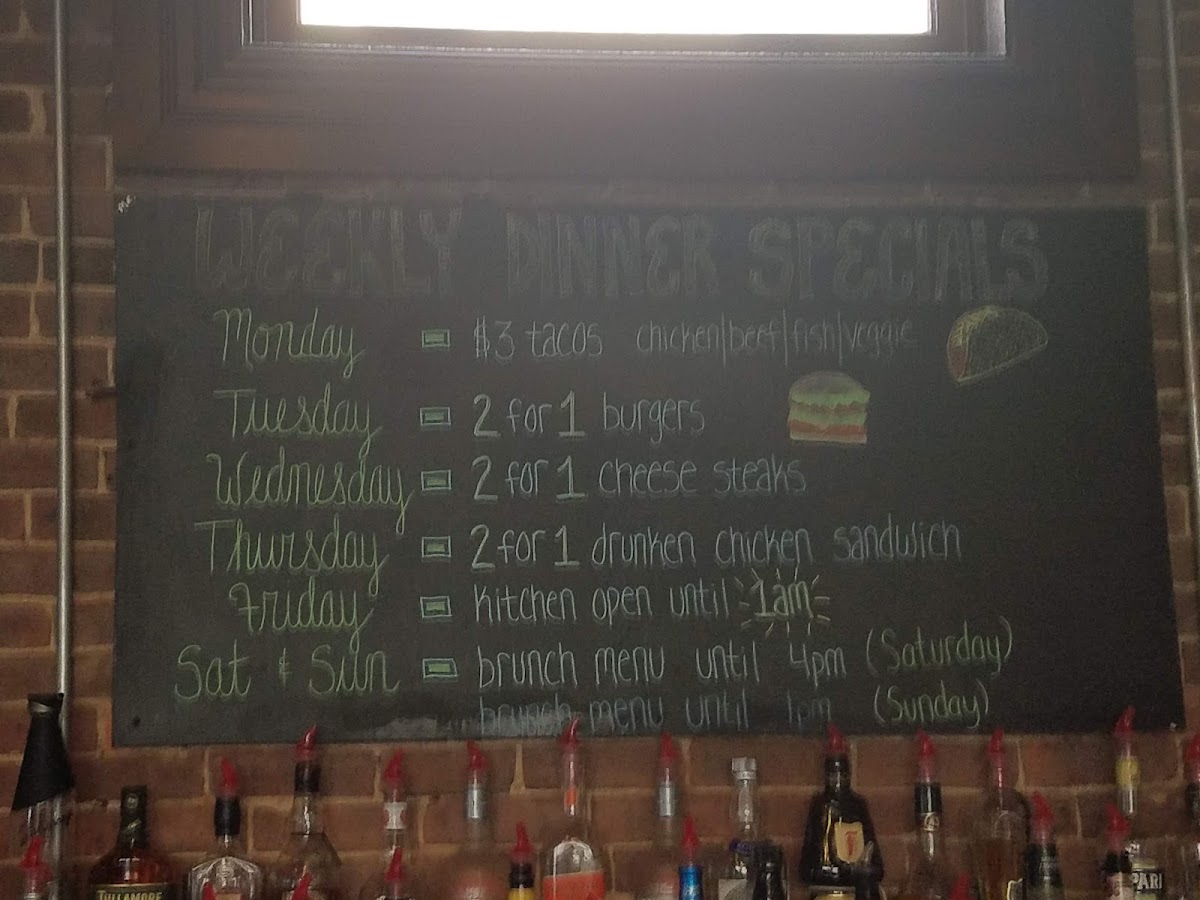 WEEKLY DINNER SPECIALS
Monday $3 tacos chicken|beef|fish|veggie
Tuesday 2 for 1 burgers
Wednesday 2 for 1 cheese steaks
Thursday 2 for 1 drunken chicken sandwich
Friday Kitchen open until 1am
Sat & Sun brunch menu until 4pm (Saturday)
brunch menu until 1pm (Sunday)
TULLAMORE